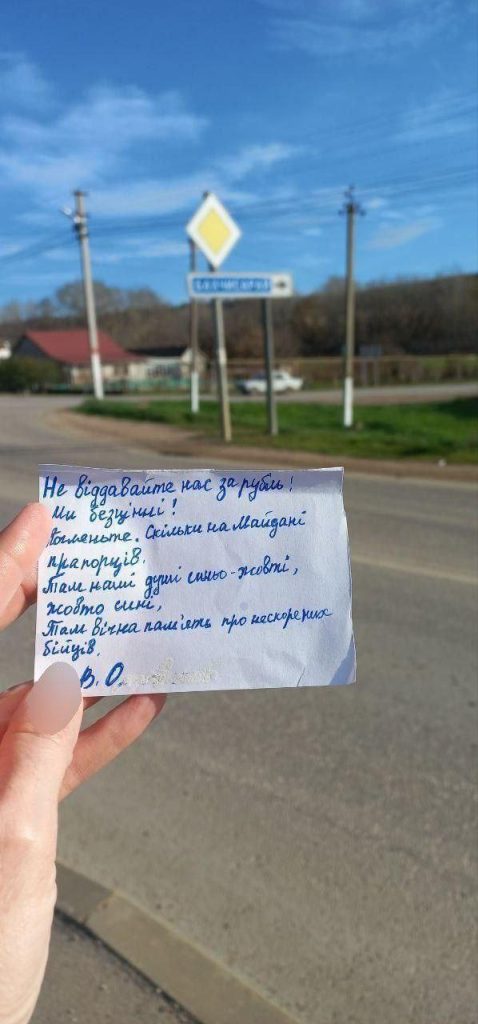 БАХЧИСАРАЙ
Не віддавайте нас за рубль!
Ми безцінні!
Погляньте. Скільки на Майдані
прапорців.
Там наші душі синьо-жовті,
жовто сині,
Там вічна пам'ять про нескорених
бійців.
В. О.